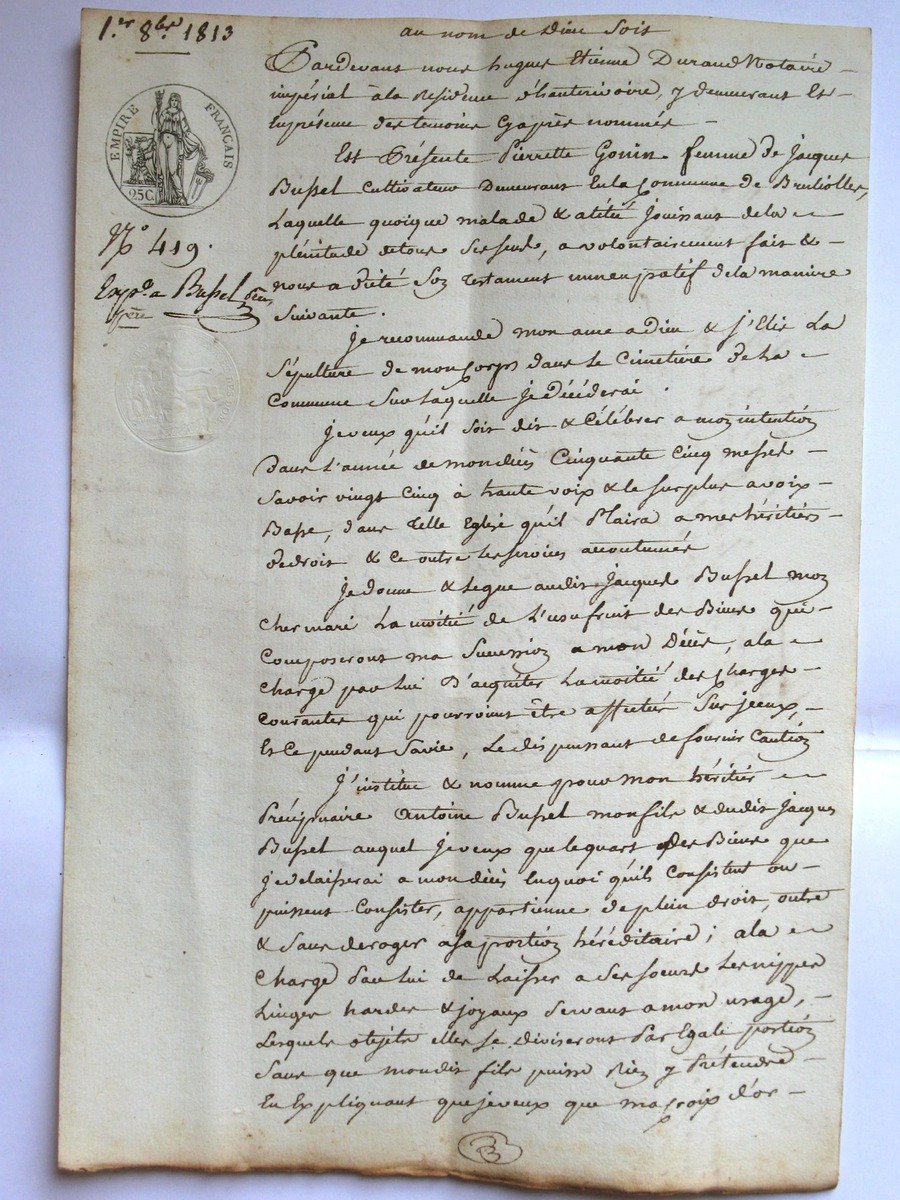 1.er 8bre 1813
au nom de Dieu Soit
Pardevant nous hugues Etienne Durand Notaire
impérial à la Residence d'hauterivoire, y demeurant Et
En présence des temoins Cy après nommés
Est Présente Pierrette Gonin femme de Jacques
Bussel Cultivateur Demeurant En la Commune de Brullolles,
Laquelle quoique malade & alitée Jouissant de la
plénitude de tous Ses sens, a volontairement fait &
nous a dicté Son testament nuncupatif de la maniere
Suivante.
Je recommande mon ame a dieu & J'Elis La
Sépulture de mon Corps dans Le Cimetiere de La
Commune Sur Laquelle Je décéderai.
Je veux qu'il Soit dit & Célébrer a mon intention
Dans L'année de mon décès Cinquante Cinq messes
Savoir vingt Cinq à haute voix & le surplus a voix
Basse, dans telle Eglise qu'il Plaira a mes héritiers
de droit & Ce outre Les services accoutumés
Je donne & Legue audit Jacques Bussel mon
Cher mari La moitié de L'usufruit des Biens qui
Composeront ma Succession a mon Décès, a la
Charge par Lui D'acquiter La moitié des Charges
Courantes qui pourroient être affectés Sur iceux,
Et Ce pendant Sa vie, Le dispensant de fournir Caution
J'institue & nomme pour mon héritier
Préciputaire Antoine Bussel mon fils & dudit Jacques
Bussel auquel Je veux que le quart des Biens que
Je delaisserai a mon décès En quoi qu'ils Consistent ou
puissent Consister, appartienne de plein droit, outre
& Sans deroger a Sa portion héréditaire; a la
Charge Par Lui de Laisser a Ses soeurs Les nippes
Linges hardes & joyaux Servant a mon usage,
Lesquels objets elles Se Diviseront Par Egale portion
Sans que mondit fils puisse Rien y Prétendre
En Expliquant que je veux que ma Croix d'or
EMPIRE FRANÇAIS
25 C.
N° 419.
Exp.on a Bussel
père